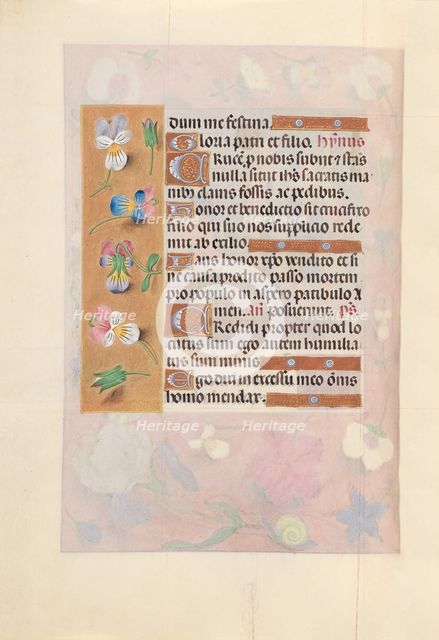 dum me festina.
Gloria patri et filio. hỹnus
Cruce͂ p nobis subnt ⁊ stas
nulla sitit ih̃s sacratis ma
nib clavis fossis ac pedibus.
Honor et benedictio sit crucifixo
filio qui suo nos supplicio rede
mit ab exilio
Laus honor xp̃o vendito et si
ne causa prodito passo mortem
pro populo in aspero patibulo A
men. añ Posuerunt. p̃s.
Credidi propter quod lo
cutus sum ego autem humilia
tus sum nimis
Ego dixi in excessu meo om̃is
homo mendax.
Heritage
Heritage
Heritage
Heritage
Heritage
Heritage